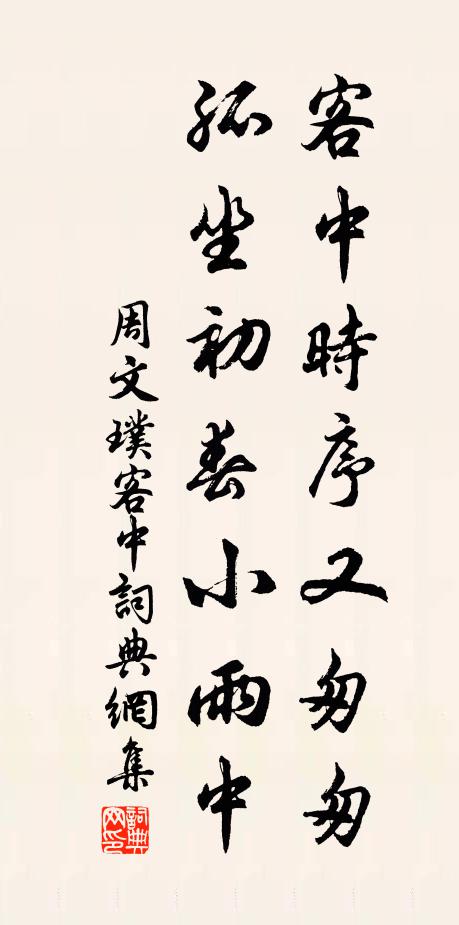 客中時序又匆匆
孤坐初春小雨中
周文璞客中詞典網集
詞典网印